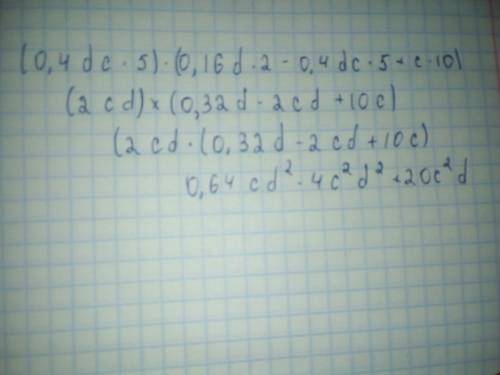 (0,4 dc · 5) · (0,16d · 2 - 0,4 dc · 5 + c · 10)
(2 cd) × (0,32d - 2cd + 10c)
(2cd · (0,32d - 2cd + 10c)
0,64 cd² - 4c²d² + 20c²d